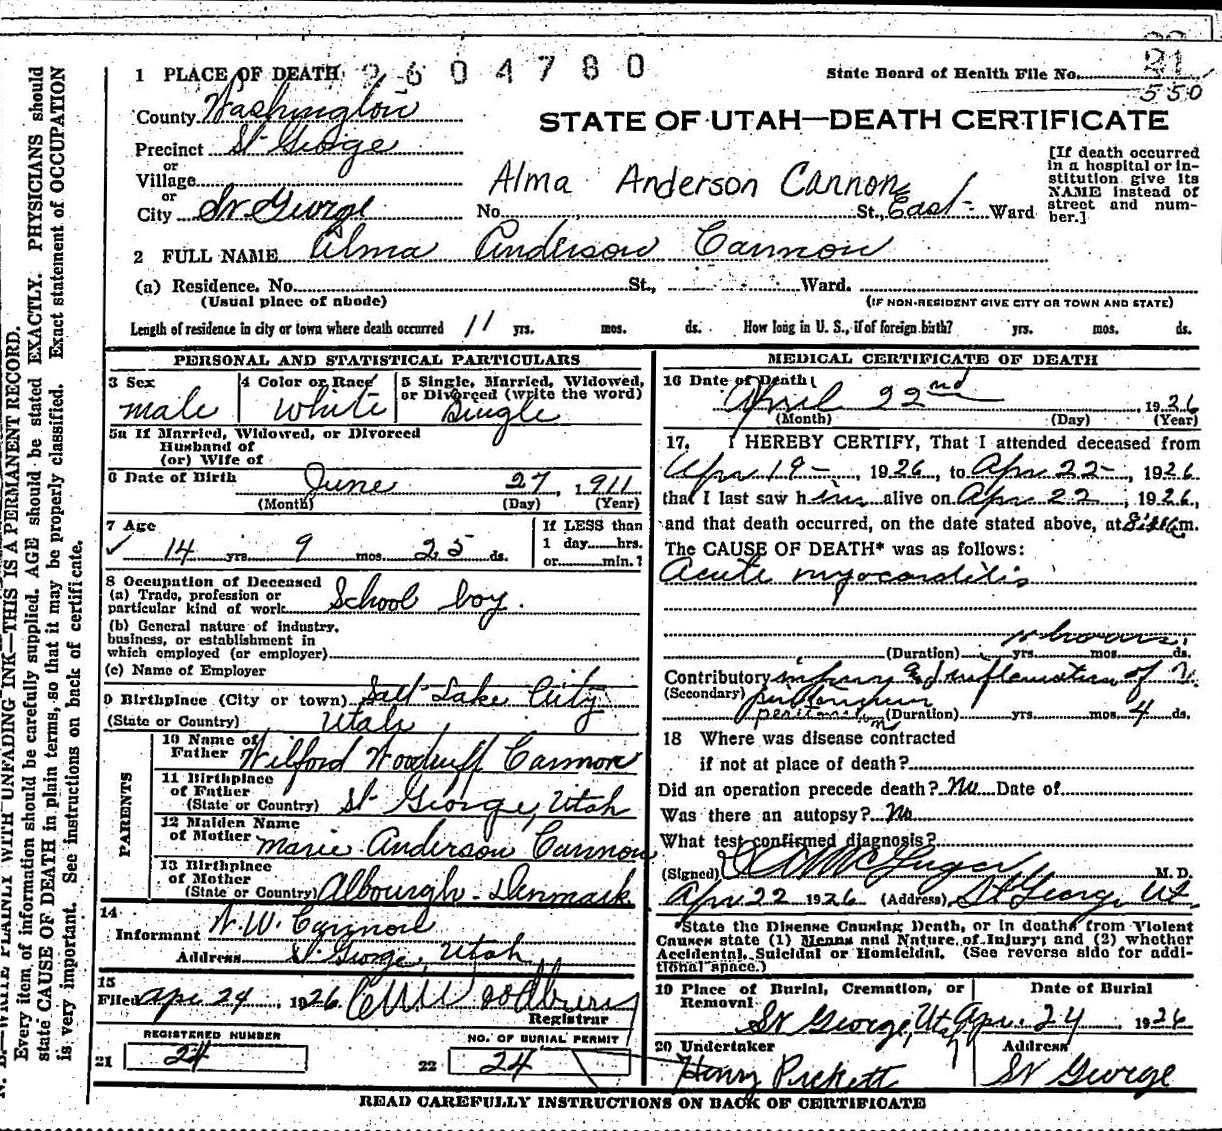 1 PLACE OF DEATH 2604780
State Board of Health File No. 21
550
County Washington
STATE OF UTAH—DEATH CERTIFICATE
Precinct St George
or
Village
or
City St. George No. St., East Ward
Alma Anderson Cannon
[If death occurred
in a hospital or in-
stitution give its
NAME instead of
street and num-
ber.]
2 FULL NAME Alma Anderson Cannon
(a) Residence. No. St., Ward.
(Usual place of abode) (IF NON-RESIDENT GIVE CITY OR TOWN AND STATE)
Length of residence in city or town where death occurred 11 yrs. mos. ds. How long in U. S., if of foreign birth? yrs. mos. ds.
PERSONAL AND STATISTICAL PARTICULARS
3 Sex
male
4 Color or Race
White
5 Single, Married, Widowed,
or Divorced (write the word)
Single
5a If Married, Widowed, or Divorced
Husband of
(or) Wife of
6 Date of Birth June 27, 1911
(Month) (Day) (Year)
7 Age
14 yrs. 9 mos. 25 ds.
If LESS than
1 day hrs.
or min.?
8 Occupation of Deceased
(a) Trade, profession or
particular kind of work School boy.
(b) General nature of industry,
business, or establishment in
which employed (or employer)
(c) Name of Employer
9 Birthplace (City or town) Salt Lake City
(State or Country) Utah
PARENTS
10 Name of
Father Wilford Woodruff Cannon
11 Birthplace
of Father
(State or Country) St George, Utah
12 Maiden Name
of Mother Marie Anderson Cannon
13 Birthplace
of Mother
(State or Country) Albourgh Denmark
14
Informant W. W. Cannon
Address St George, Utah
15
Filed Apr 24, 1926.
Registrar
REGISTERED NUMBER
21 24
NO. OF BURIAL PERMIT
22 24
MEDICAL CERTIFICATE OF DEATH
16 Date of Death
April 22nd, 1926
(Month) (Day) (Year)
17. I HEREBY CERTIFY, That I attended deceased from
Apr 19-, 1926, to Apr 22-, 1926
that I last saw him alive on Apr 22, 1926,
and that death occurred, on the date stated above, at m.
The CAUSE OF DEATH* was as follows:
Acute myocarditis
hours
(Duration) yrs. mos. ds.
Contributory injury and inflamation of
(Secondary) peritoneum
peritoneum (Duration) yrs. mos. 4 ds.
18 Where was disease contracted
if not at place of death?
Did an operation precede death? No Date of
Was there an autopsy? No
What test confirmed diagnosis?
(Signed) M. D.
Apr. 22 1926 (Address) St George, Ut.
*State the Disease Causing Death, or in deaths from Violent
Causes state (1) Means and Nature of Injury; and (2) whether
Accidental, Suicidal or Homicidal. (See reverse side for addi-
tional space.)
19 Place of Burial, Cremation, or
Removal
St George, Utah
Date of Burial
Apr. 24 1926
20 Undertaker
Henry Pickett
Address
St George
READ CAREFULLY INSTRUCTIONS ON BACK OF CERTIFICATE
N. B.—WRITE PLAINLY WITH UNFADING INK—THIS IS A PERMANENT RECORD.
Every item of information should be carefully supplied. AGE should be stated EXACTLY. PHYSICIANS should
state CAUSE OF DEATH in plain terms, so that it may be properly classified. Exact statement of OCCUPATION
is very important. See instructions on back of certificate.